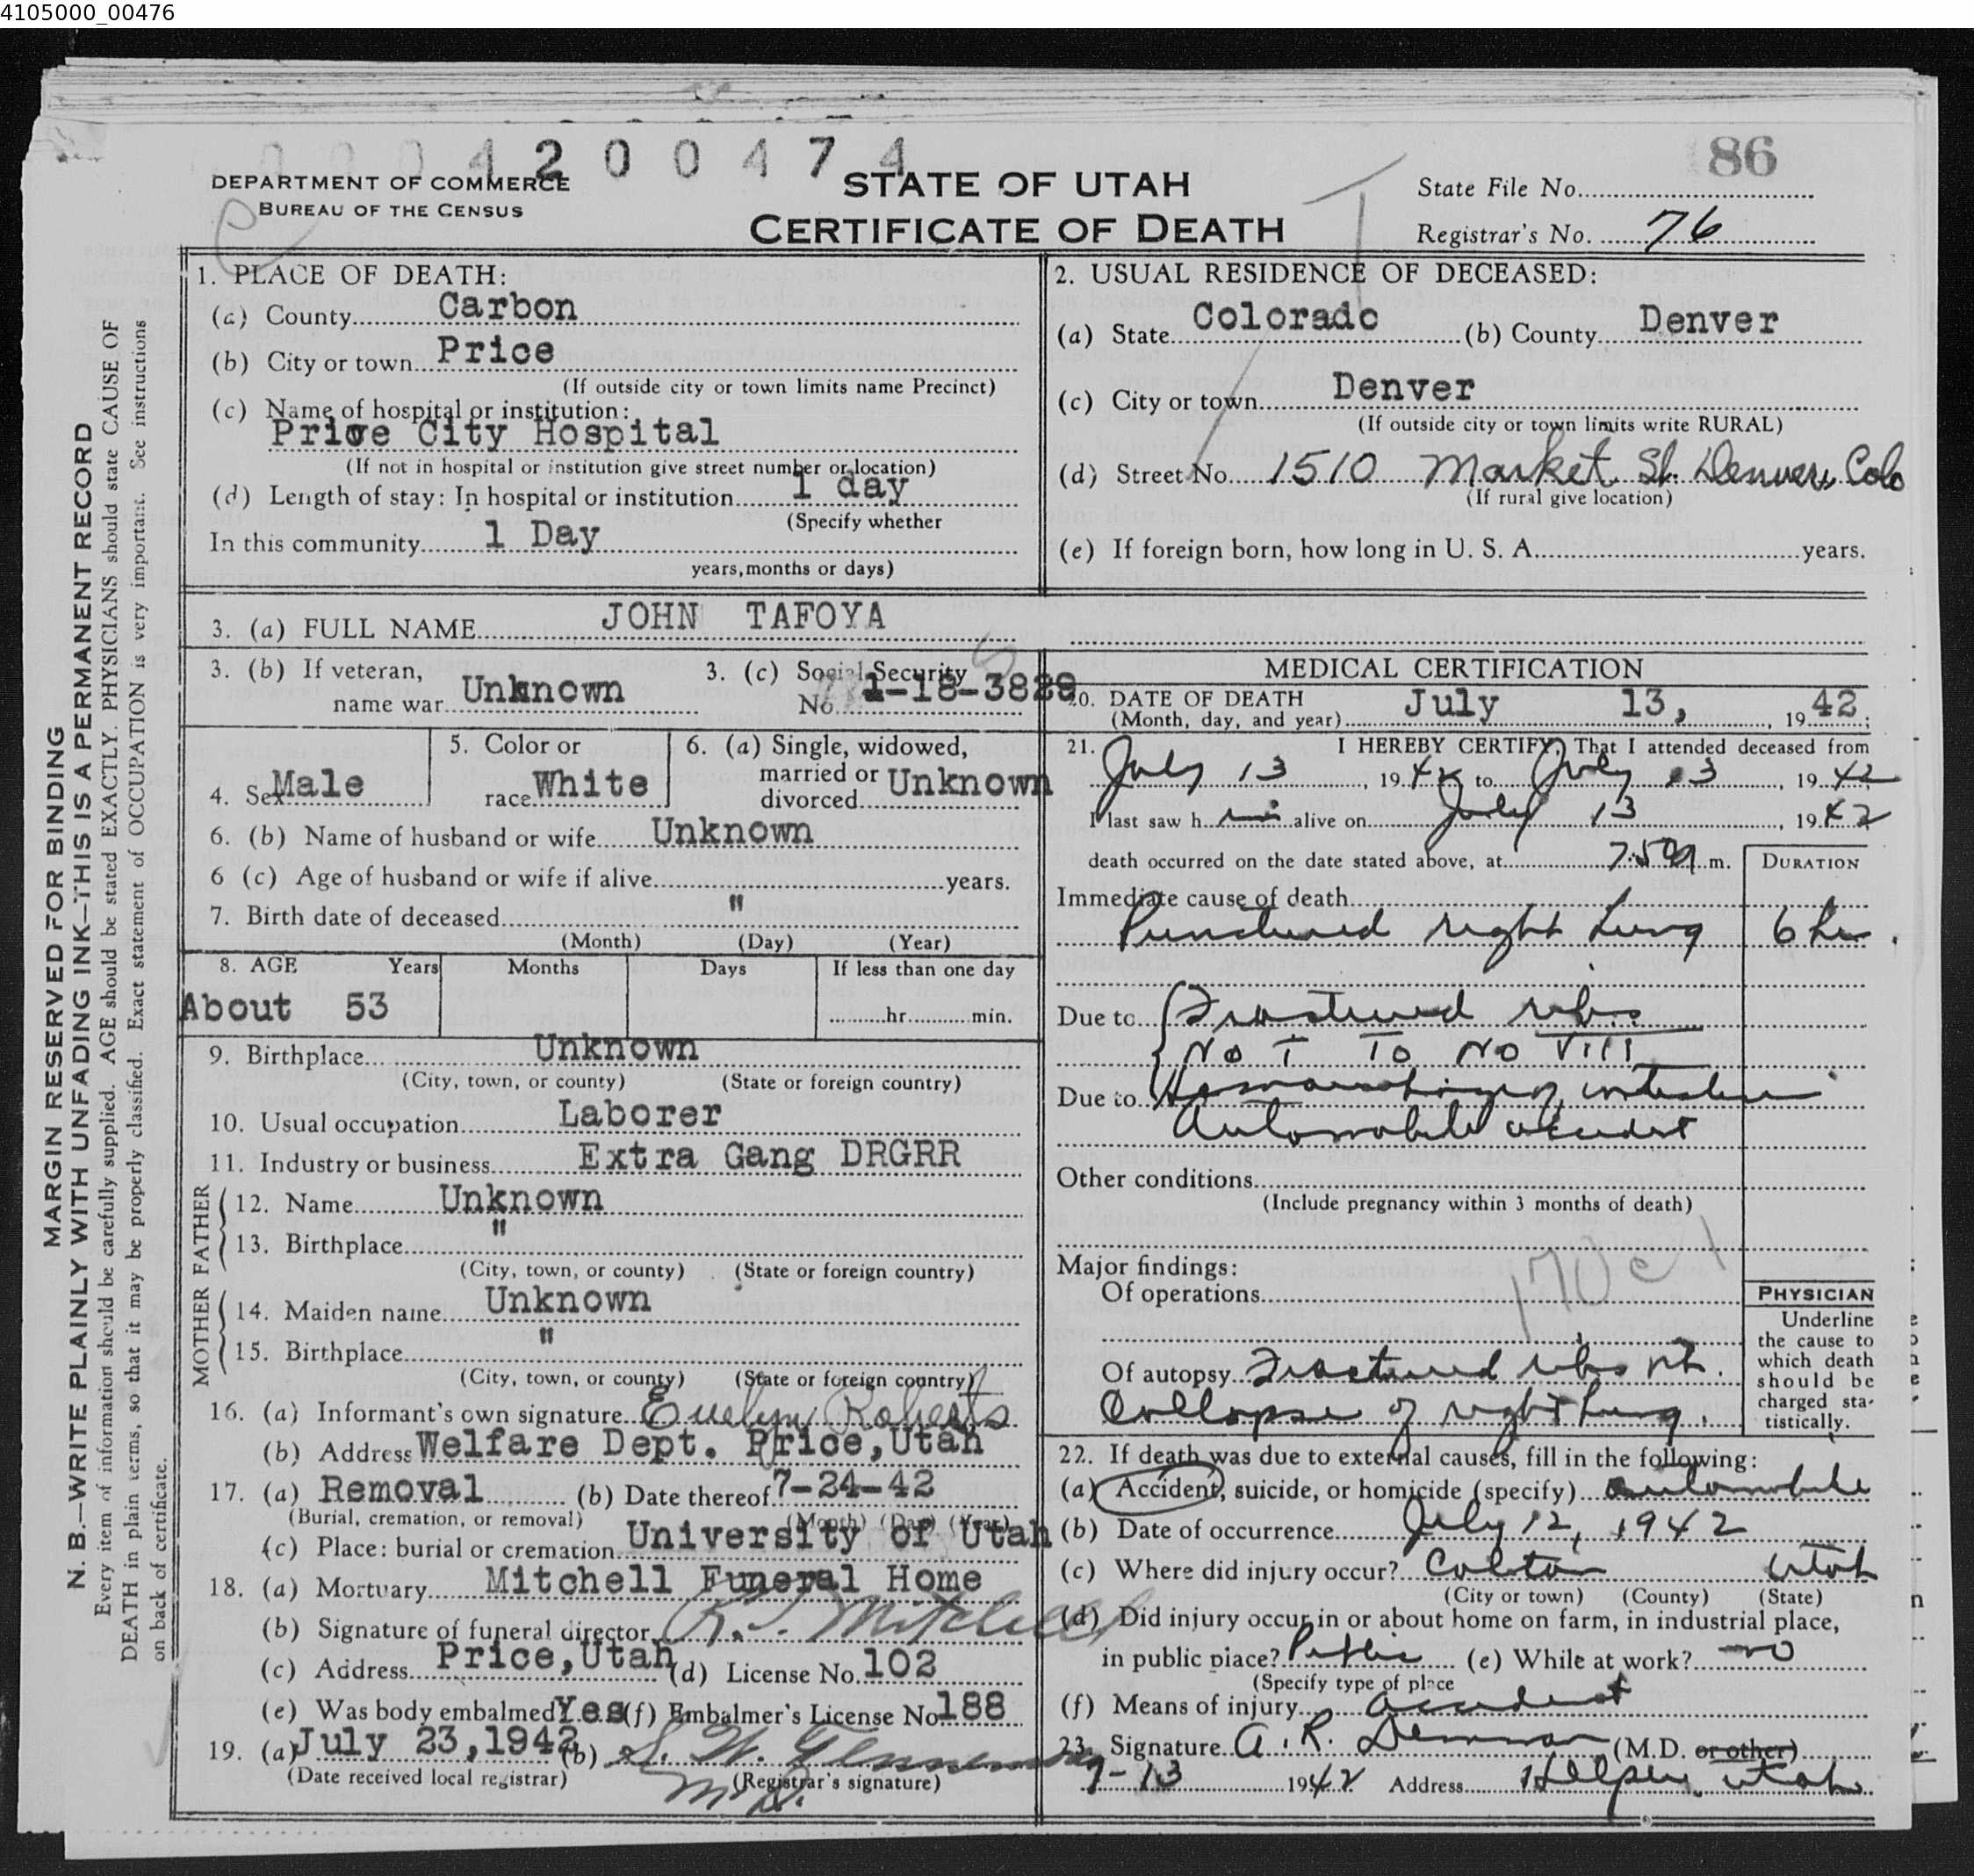 4105000_00476
0004200474
86
DEPARTMENT OF COMMERCE
BUREAU OF THE CENSUS
STATE OF UTAH
CERTIFICATE OF DEATH
State File No.
Registrar's No. 76
MARGIN RESERVED FOR BINDING
N. B.—WRITE PLAINLY WITH UNFADING INK—THIS IS A PERMANENT RECORD
Every item of information should be carefully supplied. AGE should be stated EXACTLY. PHYSICIANS should state CAUSE OF
DEATH in plain terms, so that it may be properly classified. Exact statement of OCCUPATION is very important. See instructions
on back of certificate.
1. PLACE OF DEATH:
(a) County Carbon
(b) City or town Price
(If outside city or town limits name Precinct)
(c) Name of hospital or institution:
Price City Hospital
(If not in hospital or institution give street number or location)
(d) Length of stay: In hospital or institution 1 day
(Specify whether
In this community 1 Day
years, months or days)
2. USUAL RESIDENCE OF DECEASED:
(a) State Colorado (b) County Denver
(c) City or town Denver
(If outside city or town limits write RURAL)
(d) Street No. 1510 Market St. Denver, Colo
(If rural give location)
(e) If foreign born, how long in U. S. A. years.
3. (a) FULL NAME JOHN TAFOYA
3. (b) If veteran, name war Unknown
3. (c) Social Security No.
4. Sex Male
5. Color or race White
6. (a) Single, widowed, married or divorced Unknown
6. (b) Name of husband or wife Unknown
6 (c) Age of husband or wife if alive years.
7. Birth date of deceased "
(Month) (Day) (Year)
8. AGE Years Months Days If less than one day
About 53 hr. min.
9. Birthplace Unknown
(City, town, or county) (State or foreign country)
10. Usual occupation Laborer
11. Industry or business Extra Gang DRGRR
FATHER
12. Name Unknown
13. Birthplace "
(City, town, or county) (State or foreign country)
MOTHER
14. Maiden name Unknown
15. Birthplace "
(City, town, or county) (State or foreign country)
16. (a) Informant's own signature Evelyn Roberts
(b) Address Welfare Dept. Price, Utah
17. (a) Removal (b) Date thereof 7-24-42
(Burial, cremation, or removal) (Month) (Day) (Year)
(c) Place: burial or cremation University of Utah
18. (a) Mortuary Mitchell Funeral Home
(b) Signature of funeral director Mitchell
(c) Address Price, Utah (d) License No. 102
(e) Was body embalmed Yes (f) Embalmer's License No. 188
19. (a) July 23, 1942 (b)
(Date received local registrar) (Registrar's signature)
M.D.
MEDICAL CERTIFICATION
20. DATE OF DEATH
(Month, day, and year) July 13, 1942;
21. I HEREBY CERTIFY, That I attended deceased from
July 13, 1942 to July 13, 1942
I last saw him alive on July 13, 1942
death occurred on the date stated above, at m.
DURATION
Immediate cause of death
Punctured right Lung 6 hr.
Due to Fractured ribs
No I To No VIII
Due to Hemorrhage of intestine
Automobile accident
Other conditions
(Include pregnancy within 3 months of death)
Major findings:
Of operations
170c
Of autopsy Fractured ribs rt.
Collapse of right Lung.
PHYSICIAN
Underline
the cause to
which death
should be
charged sta-
tistically.
22. If death was due to external causes, fill in the following:
(a) Accident, suicide, or homicide (specify) automobile
(b) Date of occurrence July 12, 1942
(c) Where did injury occur? Colton Utah
(City or town) (County) (State)
(d) Did injury occur in or about home on farm, in industrial place,
in public place? Public (e) While at work? no
(Specify type of place
(f) Means of injury accident
23. Signature A. R. Demman (M.D. or other)
7-13 1942 Address Helper, Utah